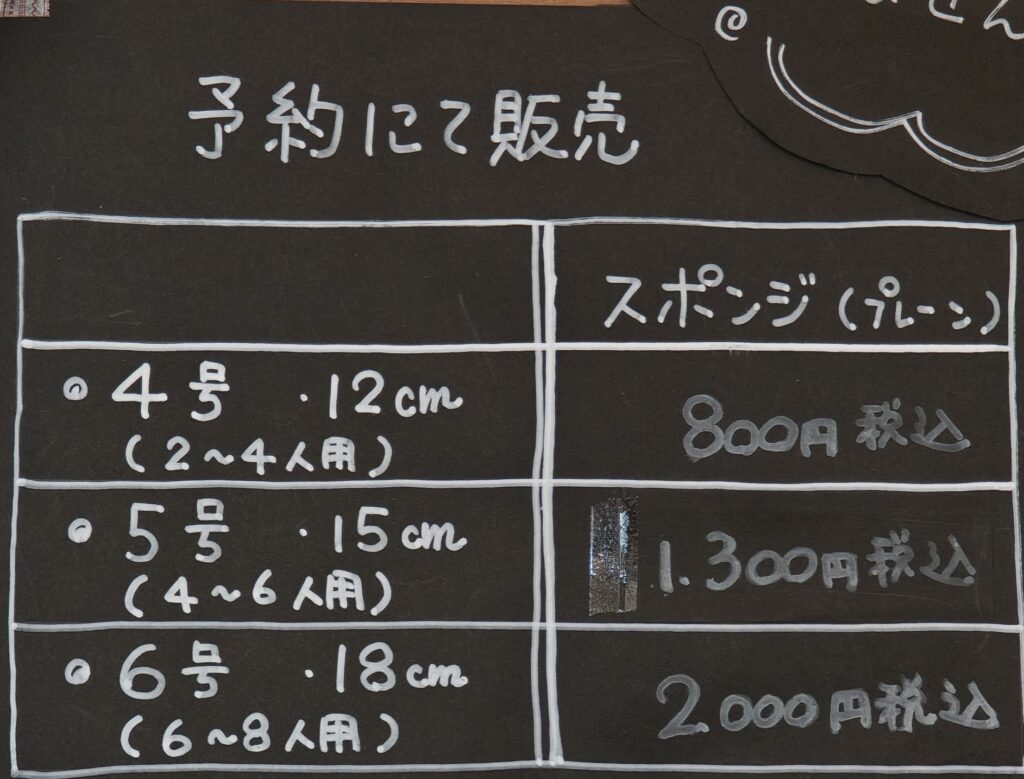 予約にて販売
スポンジ(プレーン)
4号 ・12cm
(2~4人用)
800円 税込
5号 ・15cm
(4~6人用)
1.300円税込
6号 ・18cm
(6~8人用)
2.000円税込